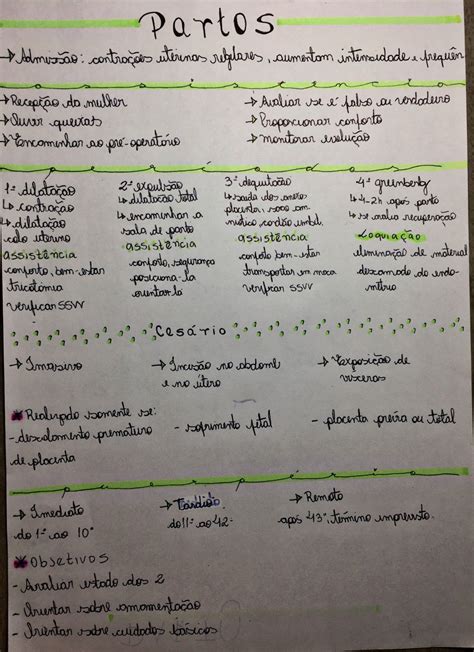 Partos
→ Admissão: contrações uterinas regulares, aumentam intensidade e frequên
assistência
→ Recepção da mulher
→ Ouvir queixas
→ Encaminhar ao pré-operatório
→ Avaliar se é falso ou verdadeiro
→ Proporcionar conforto
→ monitorar evolução
períodos
1º dilatação
↳ contração
↳ dilatação
colo uterino
assistência
conforto, bem-estar
tricotomia
verificar SSVV
2º expulsão
↳ dilatação total
↳ encaminhar a
sala de parto
assistência
conforto, segurança
posiciona-la
orientar-la
3º dequitação
↳ saída dos anexos
placenta, saco am
niótico cordão umbil.
assistência
conforto bem-estar
transportar em maca
verificar SSVV
4º greenberg
↳ 1-2h após parto
↳ se avalia recuperação
Loquiação
eliminação de material
descamado do endo-
métrio
Cesário
→ Invasivo
→ Incisão no abdome
e no útero
→ Exposição de
vísceras
* Realizado somente se:
- descolamento prematuro
de placenta
- sofrimento fetal
- placenta prévia ou total
puerpério
→ Imediato
do 1º ao 10º
→ Tardio
do 11º ao 42º
→ Remoto
após 43º, término imprevisto.
* Objetivos
- Avaliar estado dos 2
- Orientar sobre amamentação
- Orientar sobre cuidados básicos